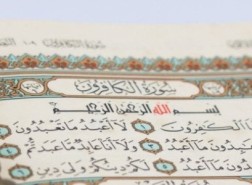 سُورَةُ الكَافِرُونَ
بِسْمِ اللَّهِ الرَّحْمَٰنِ الرَّحِيمِ
الْكَٰفِرُونَ ۝ لَا أَعْبُدُ مَا تَعْبُدُونَ ۝
مَا أَعْبُدُ ۝ وَلَا أَنَا عَابِدٌ مَّا عَبَدتُّمْ
مَا أَعْبُدُ ۝ لَكُمْ دِينُكُمْ وَلِيَ دِينِ ۝